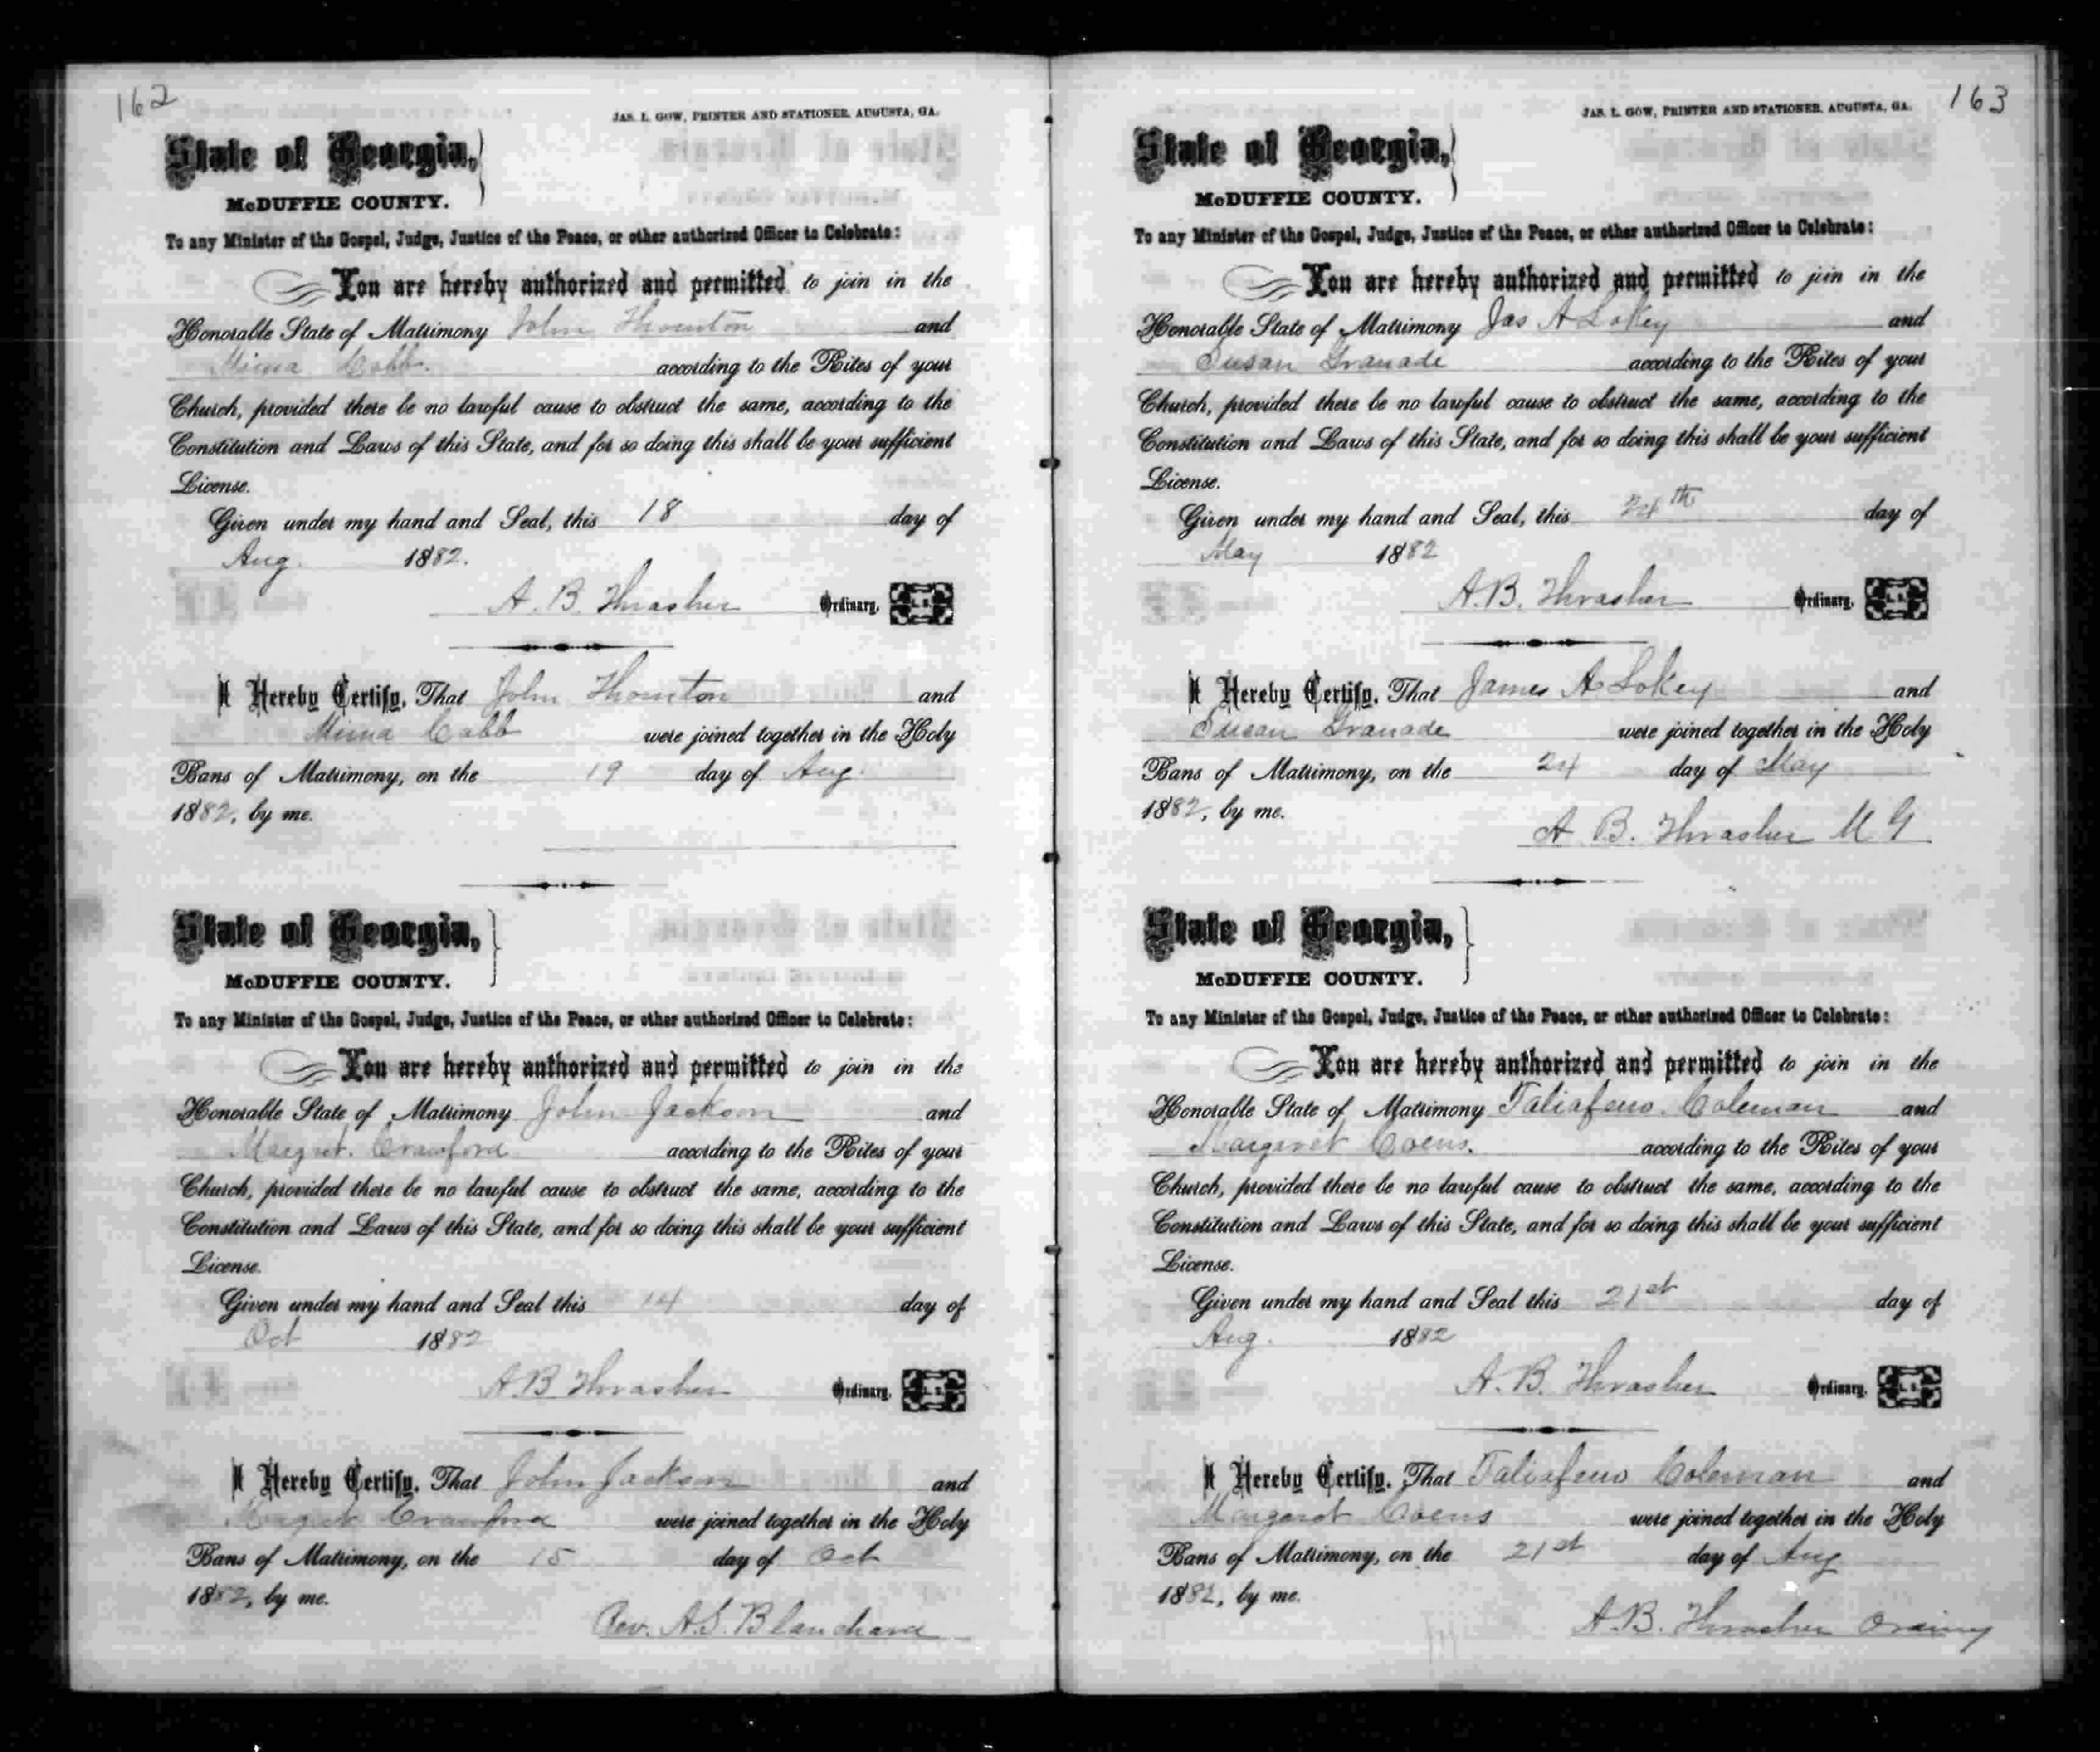 162
JAS. L. GOW, PRINTER AND STATIONER, AUGUSTA, GA.
State of Georgia,
McDUFFIE COUNTY.
To any Minister of the Gospel, Judge, Justice of the Peace, or other authorized Officer to Celebrate:
You are hereby authorized and permitted to join in the
Honorable State of Matrimony John Thornton and
Mima Cobb. according to the Rites of your
Church, provided there be no lawful cause to obstruct the same, according to the
Constitution and Laws of this State, and for so doing this shall be your sufficient
License.
Given under my hand and Seal, this 18 day of
Aug. 1882.
A. B. Thrasher Ordinary. L. S.
I Hereby Certify, That John Thornton and
Mima Cobb were joined together in the Holy
Bans of Matrimony, on the 19 day of Aug.
1882, by me.
State of Georgia,
McDUFFIE COUNTY.
To any Minister of the Gospel, Judge, Justice of the Peace, or other authorized Officer to Celebrate:
You are hereby authorized and permitted to join in the
Honorable State of Matrimony John Jackson and
Margret. Crawford according to the Rites of your
Church, provided there be no lawful cause to obstruct the same, according to the
Constitution and Laws of this State, and for so doing this shall be your sufficient
License.
Given under my hand and Seal this 14 day of
Oct 1882
A B Thrasher Ordinary. L. S.
I Hereby Certify, That John Jackson and
Margret Crawford were joined together in the Holy
Bans of Matrimony, on the 15 day of Oct
1882, by me.
Rev. A. S. Blanchard
163
JAS. L. GOW, PRINTER AND STATIONER, AUGUSTA, GA.
State of Georgia,
McDUFFIE COUNTY.
To any Minister of the Gospel, Judge, Justice of the Peace, or other authorized Officer to Celebrate:
You are hereby authorized and permitted to join in the
Honorable State of Matrimony Jas A Lokey and
Susan Granade according to the Rites of your
Church, provided there be no lawful cause to obstruct the same, according to the
Constitution and Laws of this State, and for so doing this shall be your sufficient
License.
Given under my hand and Seal, this 24th day of
May 1882
A. B. Thrasher Ordinary. L. S.
I Hereby Certify, That James A Lokey and
Susan Granade were joined together in the Holy
Bans of Matrimony, on the 24 day of May
1882, by me.
A B. Thrasher M G
State of Georgia,
McDUFFIE COUNTY.
To any Minister of the Gospel, Judge, Justice of the Peace, or other authorized Officer to Celebrate:
You are hereby authorized and permitted to join in the
Honorable State of Matrimony Taliafero Coleman and
Margaret Coens. according to the Rites of your
Church, provided there be no lawful cause to obstruct the same, according to the
Constitution and Laws of this State, and for so doing this shall be your sufficient
License.
Given under my hand and Seal this 21st day of
Aug. 1882
A. B. Thrasher Ordinary. L. S.
I Hereby Certify, That Taliafero Coleman and
Margaret Coens were joined together in the Holy
Bans of Matrimony, on the 21st day of Aug
1882, by me.
A. B. Thrasher Ordinary